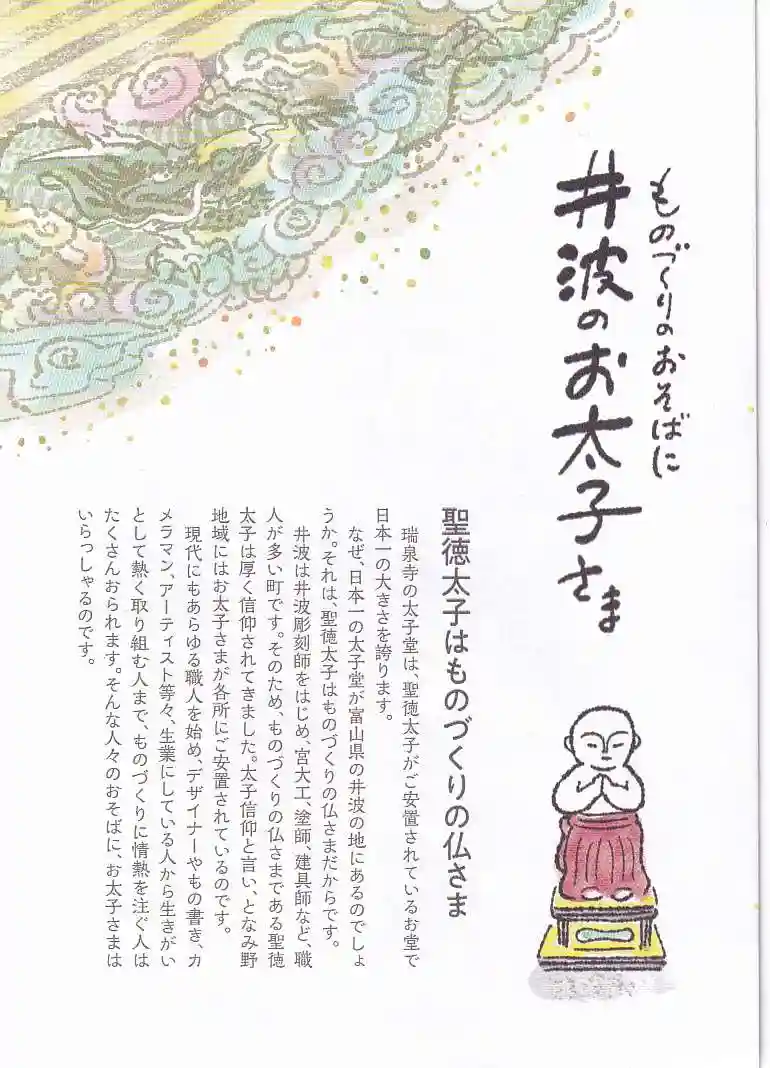 ものづくりのおそばに
井波のお太子さま
聖徳太子はものづくりの仏さま
瑞泉寺の太子堂は、聖徳太子がご安置されているお堂で
日本一の大きさを誇ります。
なぜ、日本一の太子堂が富山県の井波の地にあるのでしょ
うか。それは、聖徳太子はものづくりの仏さまだからです。
井波は井波彫刻師をはじめ、宮大工、塗師、建具師など、職
人が多い町です。そのため、ものづくりの仏さまである聖徳
太子は厚く信仰されてきました。太子信仰と言い、となみ野
地域にはお太子さまが各所にご安置されているのです。
現代にもあらゆる職人を始め、デザイナーやもの書き、カ
メラマン、アーティスト等々、生業にしている人から生きがい
として熱く取り組む人まで、ものづくりに情熱を注ぐ人は
たくさんおられます。そんな人々のおそばに、お太子さまは
いらっしゃるのです。